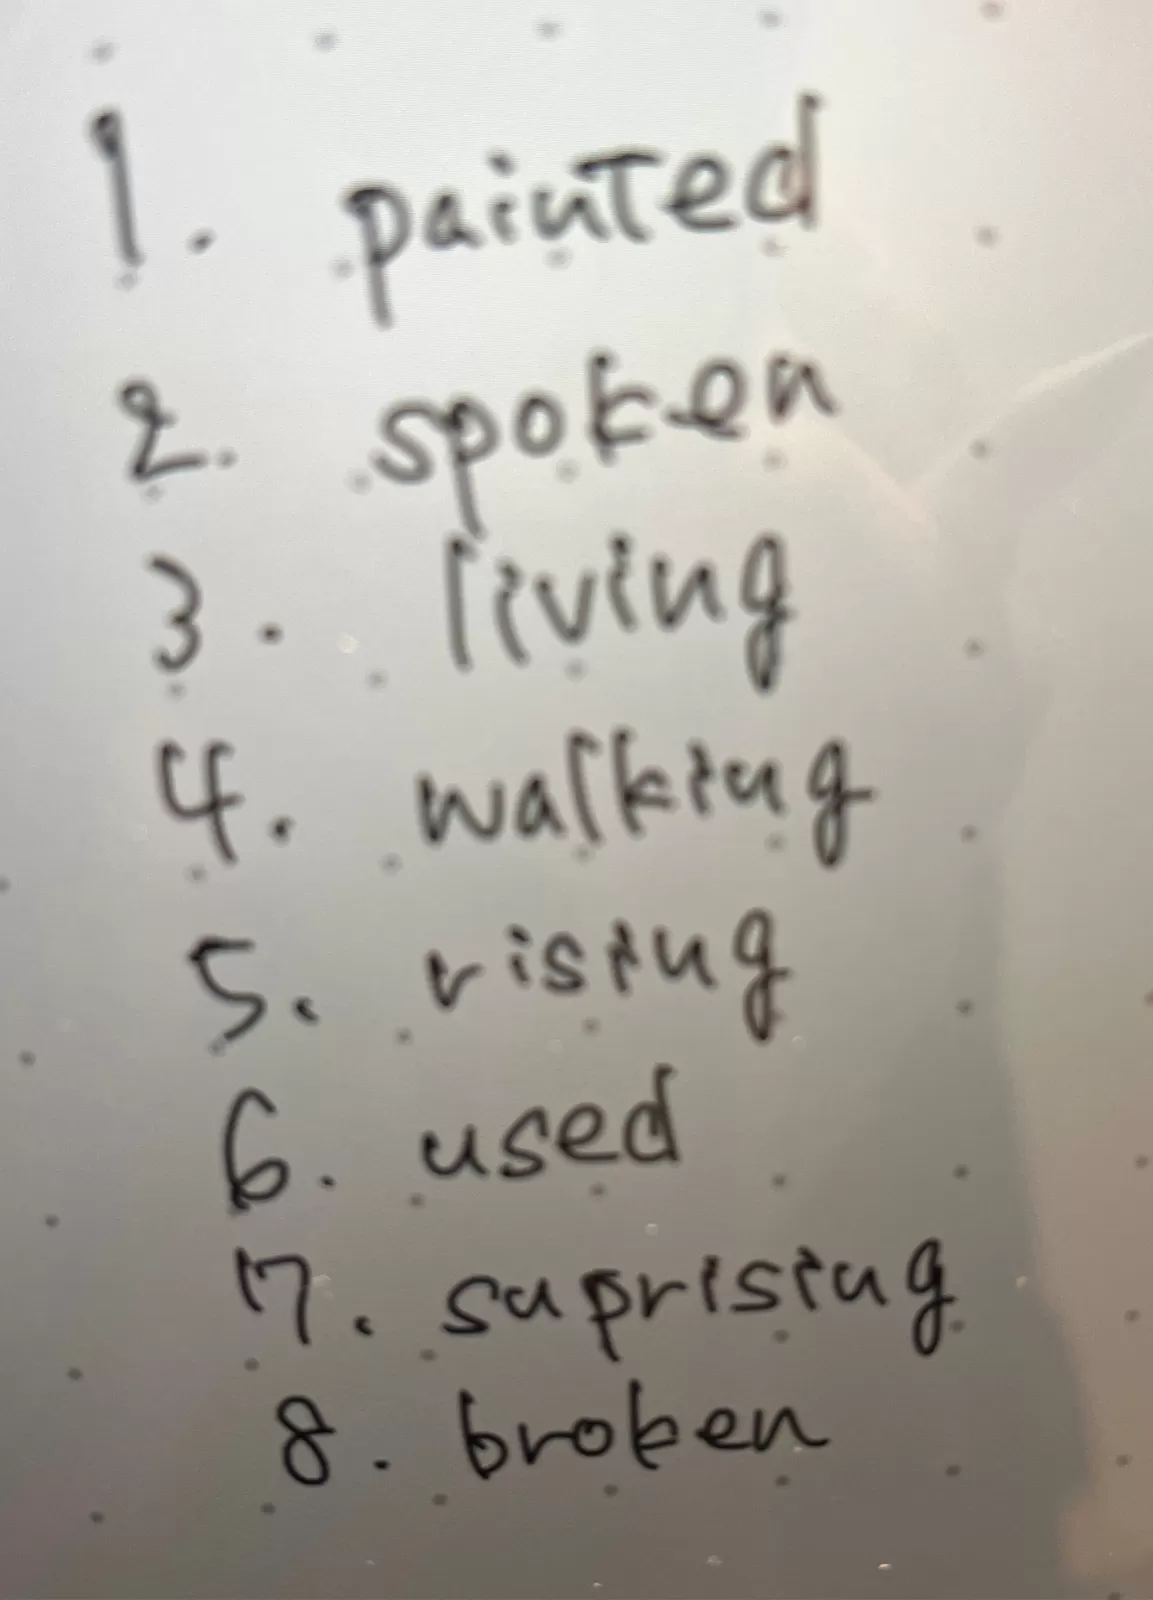 1. painted
2. spoken
3. living
4. walking
5. rising
6. used
7. suprising
8. broken